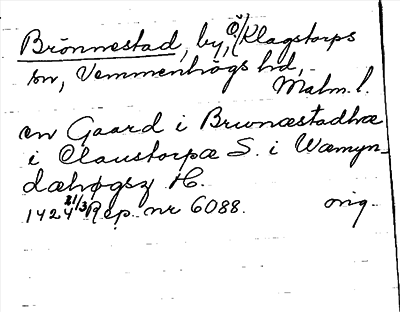 Brönnestad, by, Ö/Klagstorps
sn, Vemmenhögs hd,
Malm. l.
en Gaard i Brwnæstadhæ
i Claustorpæ S. i Wæmyn-
dæhøgsz H.
1424 21/3 Rep. nr 6088. orig.